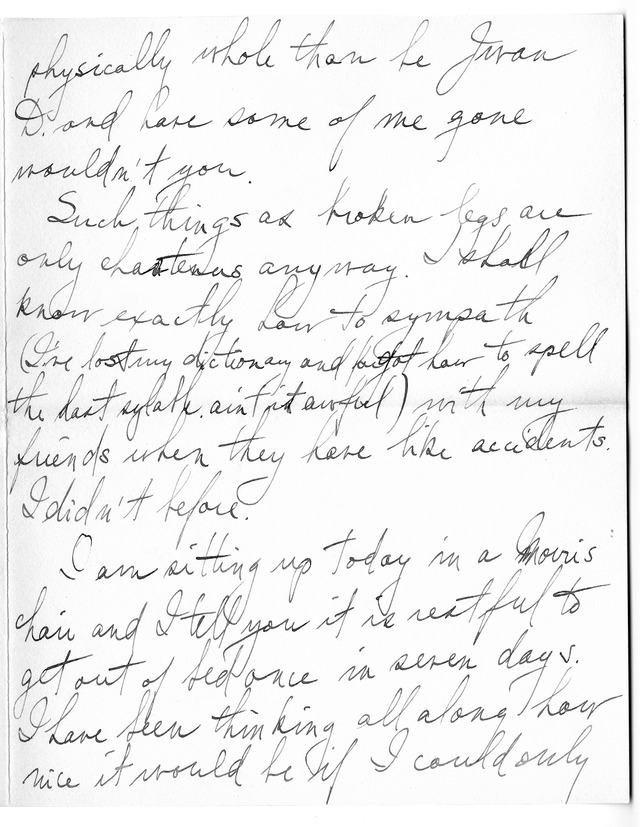 physically whole than be Jwan
D. and have some of me gone
wouldn't you.
Such things as broken legs are
only chastenus anyway. I shall
know exactly how to sympath
(I've lost my dictionary and forgot how to spell
the last sylable. ain't it awful) with my
friends when they have like accidents.
I didn't before.
I am sitting up today in a Morris
chair and I tell you it is restful to
get out of bed once in seven days.
I have been thinking all along how
nice it would be if I could only